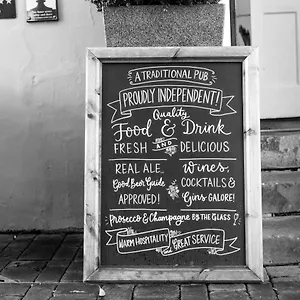 A TRADITIONAL PUB
PROUDLY INDEPENDENT!
Quality
Food & Drink
FRESH AND DELICIOUS
REAL ALE
Good Beer Guide
APPROVED!
Wines,
COCKTAILS &
Gins GALORE!
Prosecco & Champagne BY THE GLASS
WARM HOSPITALITY
GREAT SERVICE